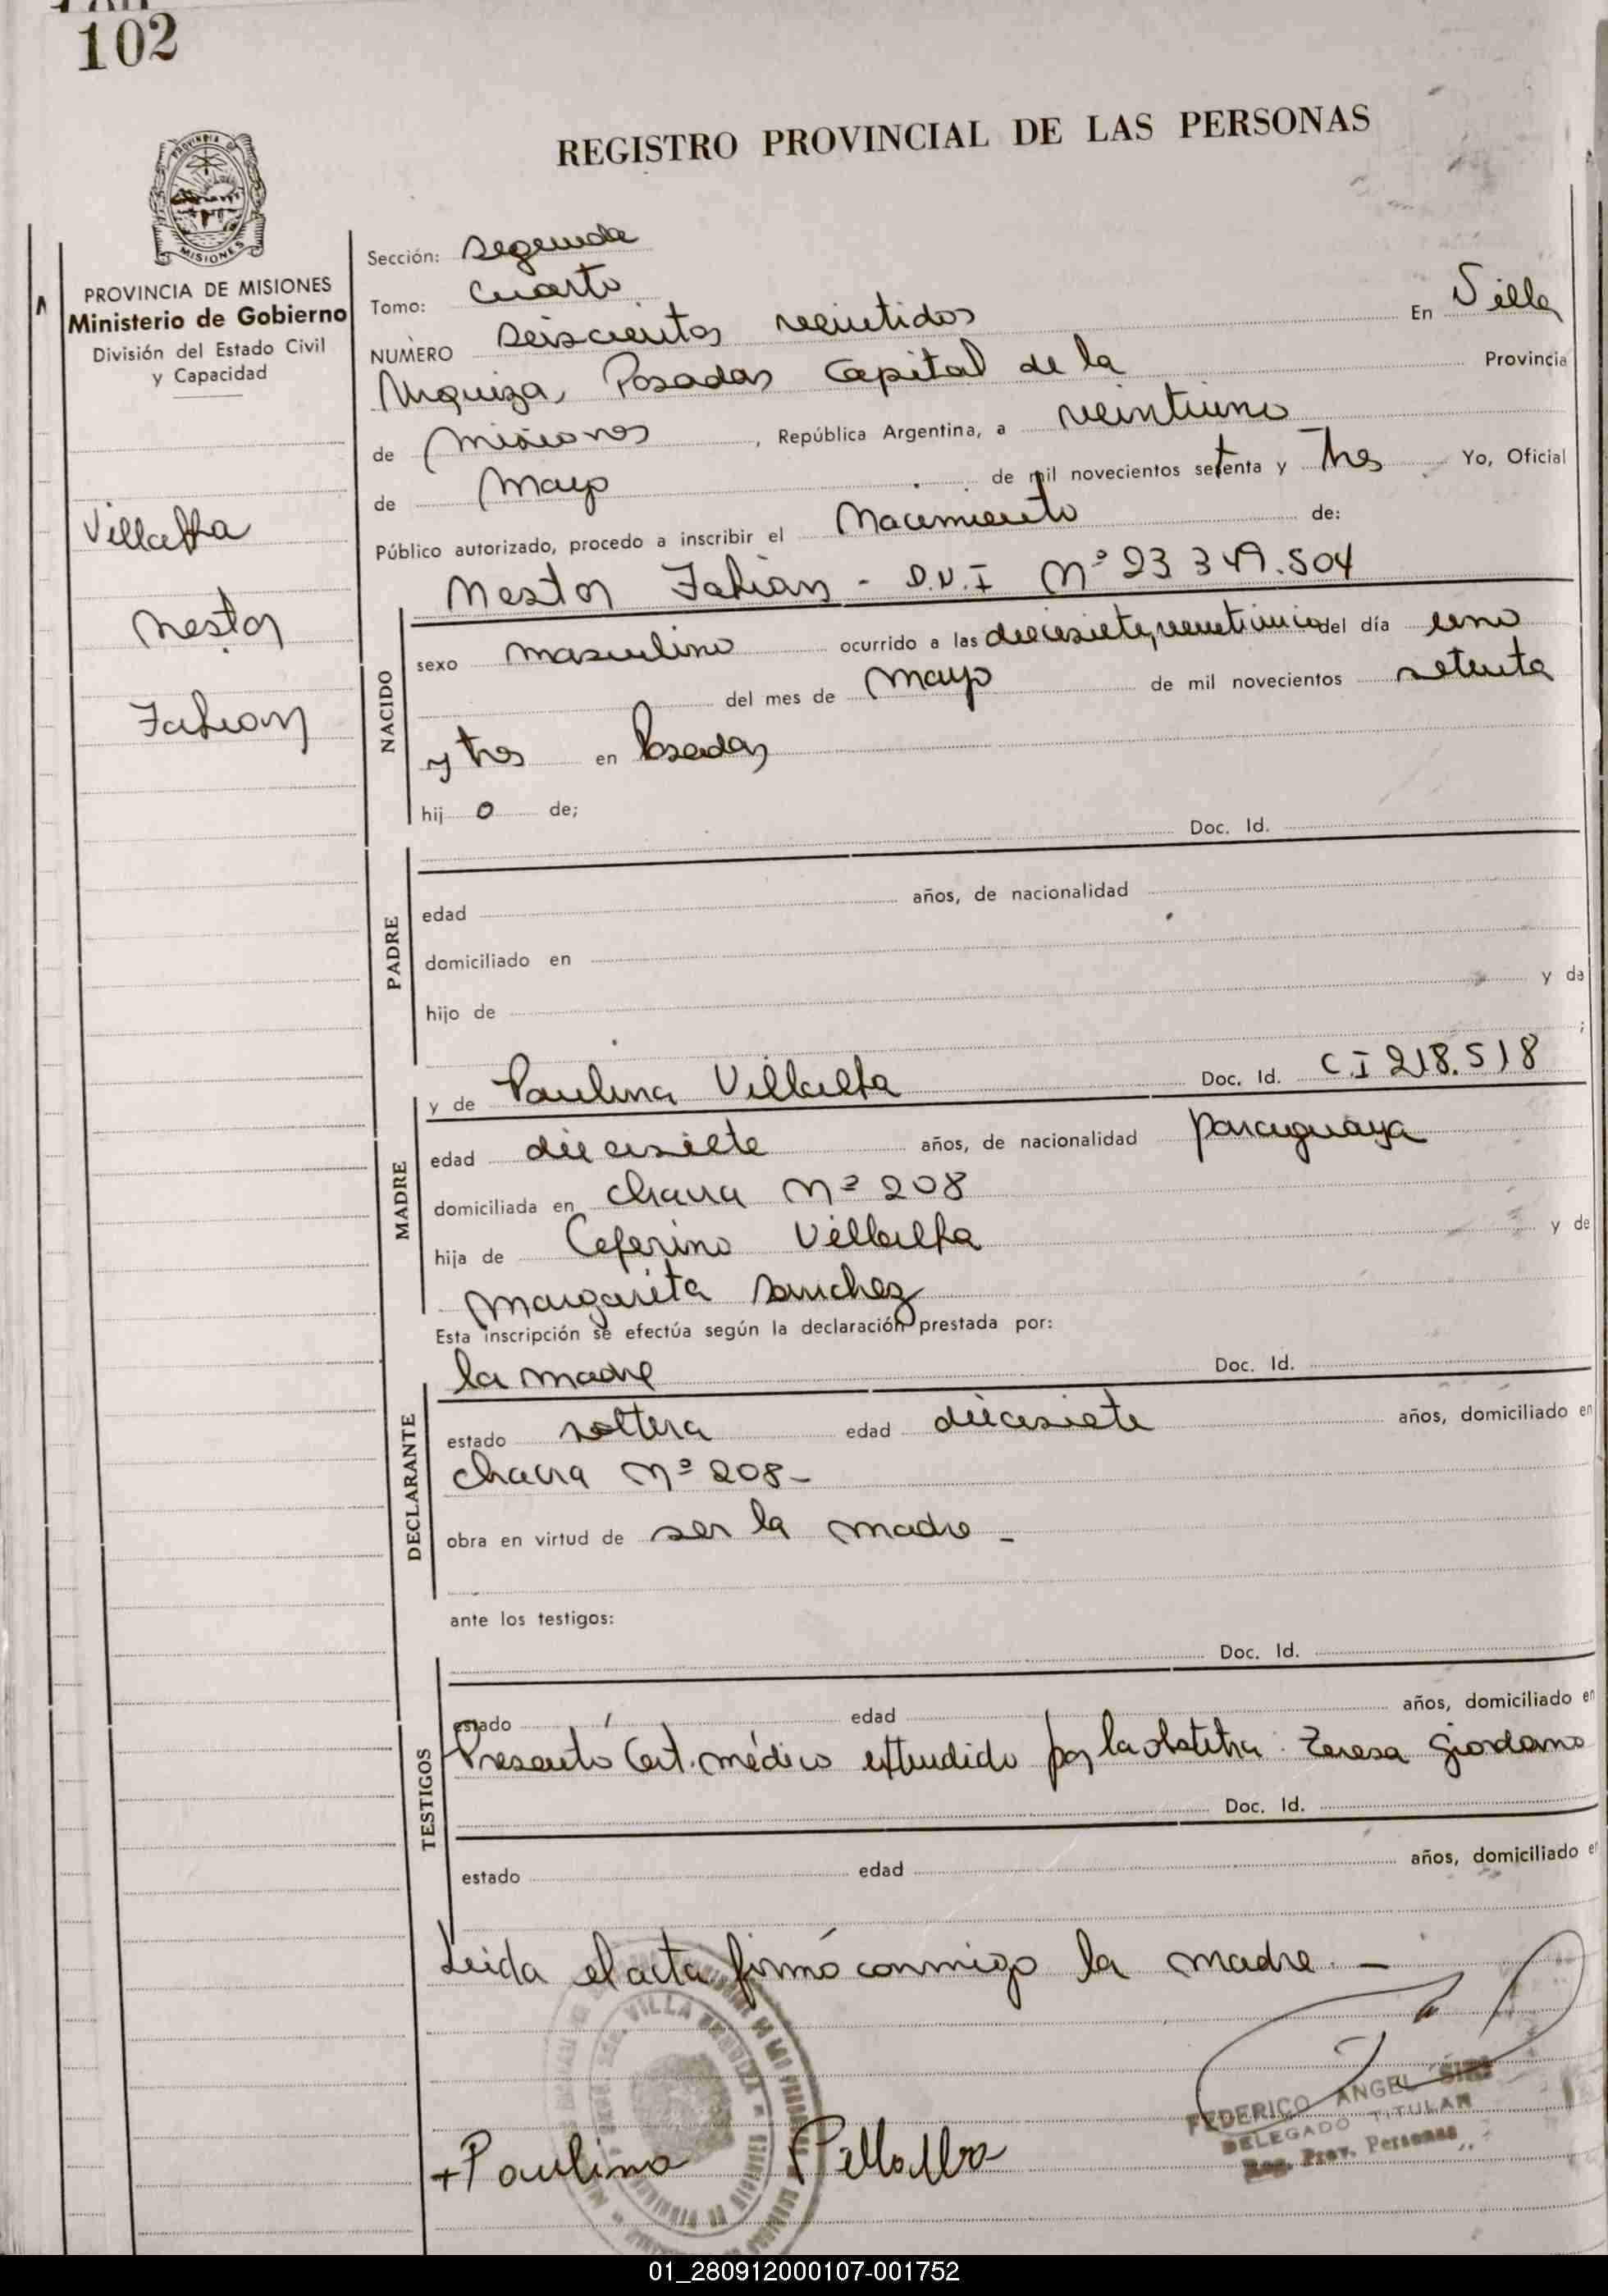 102
REGISTRO PROVINCIAL DE LAS PERSONAS
MISIONES
PROVINCIA DE MISIONES
Ministerio de Gobierno
División del Estado Civil
y Capacidad
Villalba
Nestor
Fabian
Sección: Segunda
Tomo: Cuarto
NUMERO Seiscientos veintidos En Villa
Urquiza, Posadas Capital de la Provincia
de Misiones, República Argentina, a veintiuno
de Mayo de mil novecientos setenta y Tres Yo, Oficial
Público autorizado, procedo a inscribir el Nacimiento de:
Nestor Fabian - D.N.I Nº 23 349.504
NACIDO
sexo masculino ocurrido a las diecisiete, veinticinco del día uno
del mes de Mayo de mil novecientos setenta
y tres en Posadas
hij o de;
Doc. Id.
PADRE
edad años, de nacionalidad
domiciliado en
hijo de y da
;
y de Paulina Villalba Doc. Id. C.I 218.518
MADRE
edad diecisiete años, de nacionalidad paraguaya
domiciliada en chacra Nº 208
hija de Ceferino Villalba y de
Margarita Sanchez
Esta inscripción se efectúa según la declaración prestada por:
la madre Doc. Id.
DECLARANTE
estado soltera edad diecisiete años, domiciliado en
chacra Nº 208-
obra en virtud de ser la madre -
ante los testigos:
Doc. Id.
TESTIGOS
estado edad años, domiciliado en
Presentó Cert. médico extendido por la obstetra: Teresa Giordano
Doc. Id.
estado edad años, domiciliado en
Leida el acta firmó conmigo la madre. -
VILLA URQUIZA
FEDERICO ANGEL
DELEGADO TITULAR
Reg. Prov. Personas
+Paulina Villalba
01_280912000107-001752